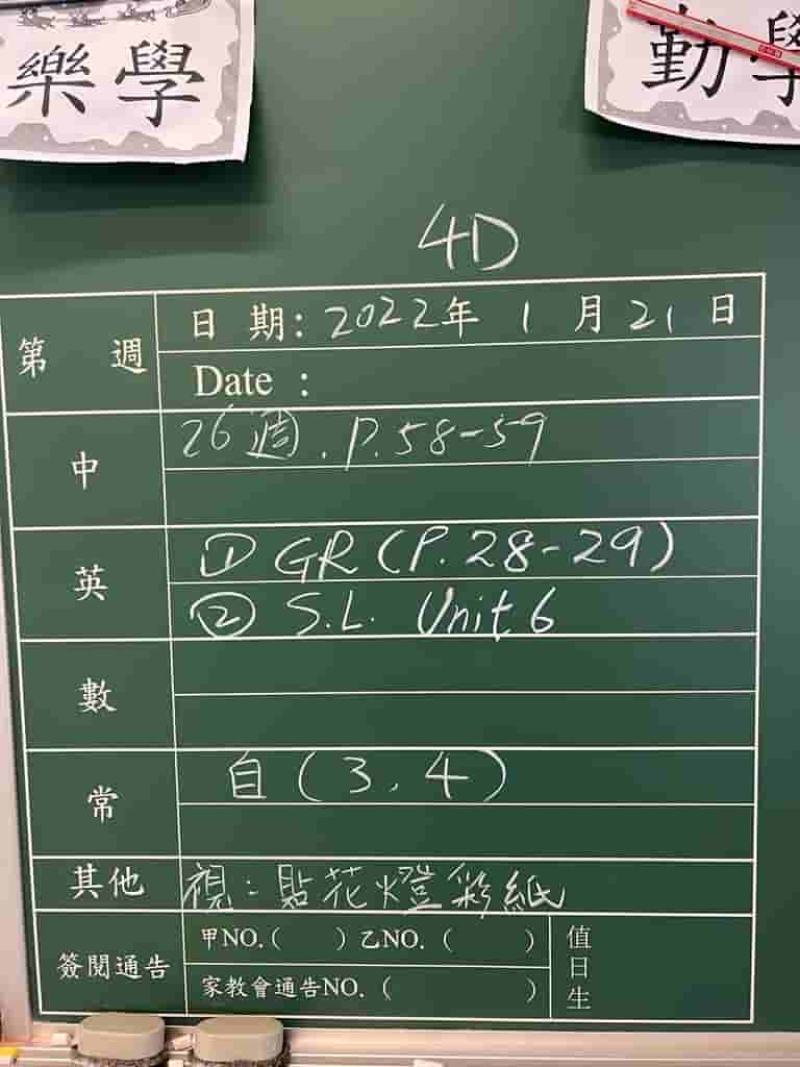 樂學
勤學
4D
第 週
日 期: 2022年 1 月 21 日
Date :
中
26週. P.58-59
英
① GR (P.28-29)
② S.L. Unit 6
數
常
自(3,4)
其他
視:貼花燈彩紙
簽閱通告
甲NO.( ) 乙NO. ( )
家教會通告NO. ( )
值日生